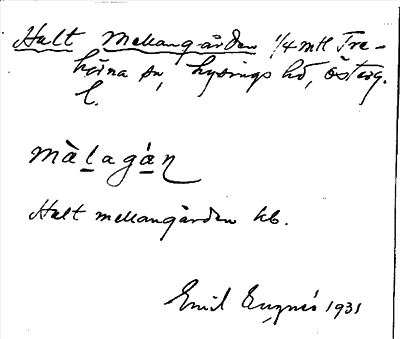 Halt Mellangården 1/4 mtl Tre-
hörna sn, Lysings hd, Österg.
l.
màlagán
Halt mellangården kb.
Emil 1931